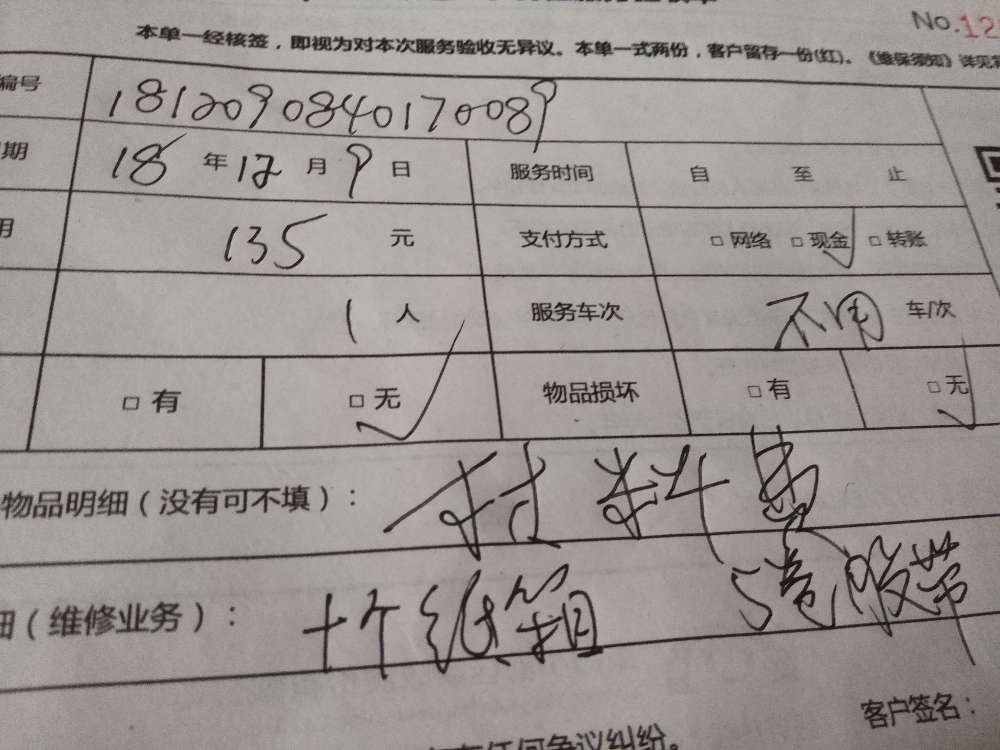 No.12
本单一经核签，即视为对本次服务验收无异议。本单一式两份，客户留存一份(红)。《维保须知》详见
编号 1812090840170089
期 18 年 12 月 9 日 服务时间 自 至 止
用 135 元 支付方式 □ 网络 □ 现金 □ 转账
1 人 服务车次 不用 车/次
□ 有 □ 无 物品损坏 □ 有 □ 无
物品明细（没有可不填）： 材料费
细（维修业务）： 十个纸箱 5卷胶带
客户签名：
任何争议纠纷。